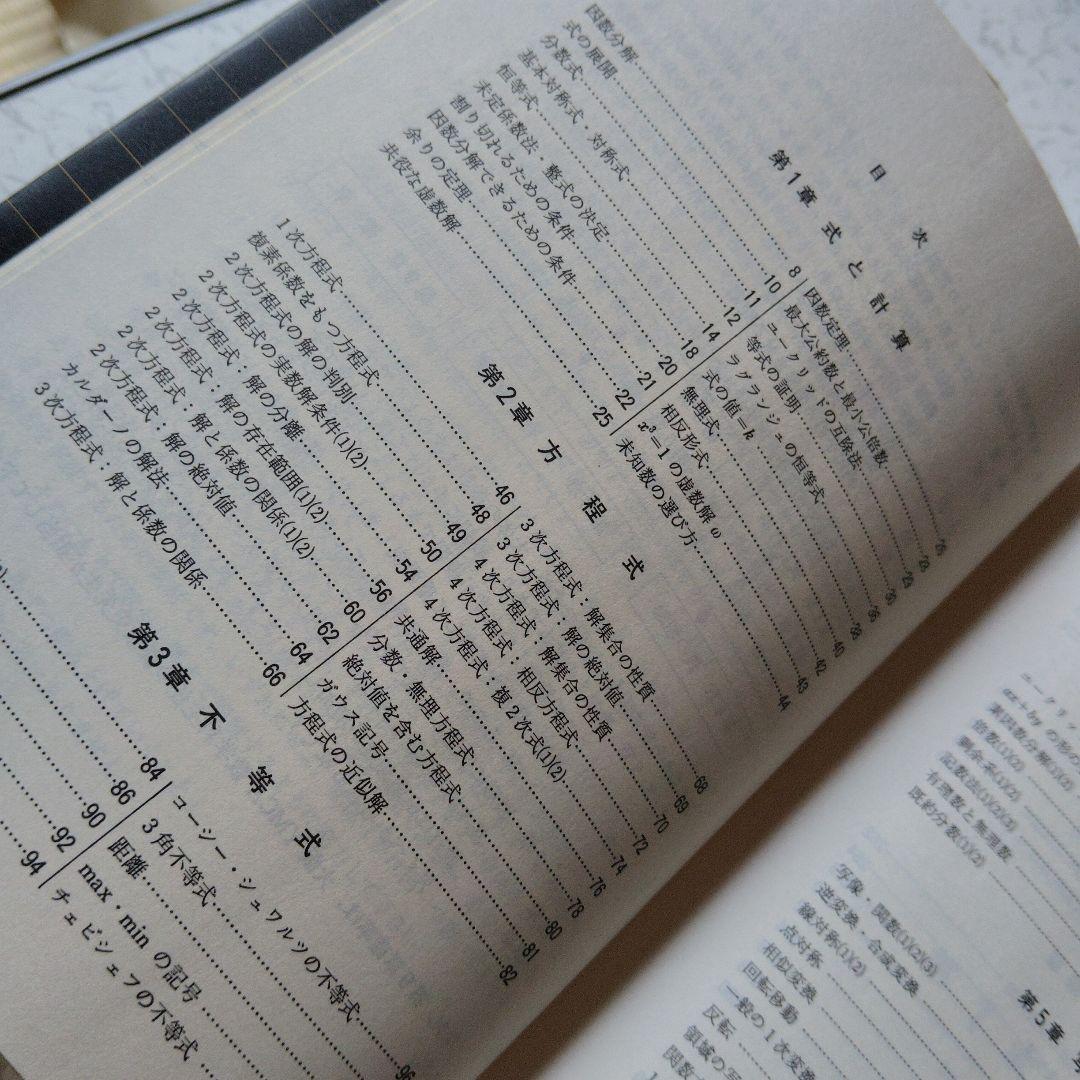 目次
第1章 式と計算
因数分解……8
式の展開……10
分数式……11
基本対称式・対称式……12
恒等式……14
未定係数法・整式の決定……18
割り切れるための条件……20
因数分解できるための条件……21
余りの定理……22
共役な虚数解……25
因数定理……26
最大公約数と最小公倍数……28
ユークリッドの互除法……29
等式の証明……30
ラグランジュの恒等式……36
式の値=k……38
無理式……40
相反形式……42
x³=1の虚数解ω……43
未知数の選び方……44
第2章 方程式
1次方程式……46
複素係数をもつ方程式……48
2次方程式の解の判別……49
2次方程式の実数解条件(1)(2)……50
2次方程式:解の分離……54
2次方程式:解の存在範囲(1)(2)……56
2次方程式:解と係数の関係(1)(2)……60
2次方程式:解の絶対値……62
カルダーノの解法……64
3次方程式:解と係数の関係……66
3次方程式:解集合の性質……68
3次方程式:解の絶対値……69
4次方程式:解集合の性質……70
4次方程式:相反方程式……72
4次方程式:複2次式(1)(2)……74
共通解……76
分数・無理方程式……78
絶対値を含む方程式……80
ガウス記号……81
方程式の近似解……82
第3章 不等式
84
86
90
92
94
コーシー・シュワルツの不等式……96
3角不等式
距離
max・minの記号
チェビシェフの不等式
ユークリッ
ax+byの形の
素因数分解(1)(2)
倍数(1)(2)
剰余系(1)(2)
記数法(1)(2)(3)
有理数と無理数
既約分数(1)(2)
第5章
写像・関数(1)(2)(3)
逆変換・合成変換
線対称(1)(2)
点対称
相似変換
回転移動
一般の1次変換
反転
領域の写
関数方